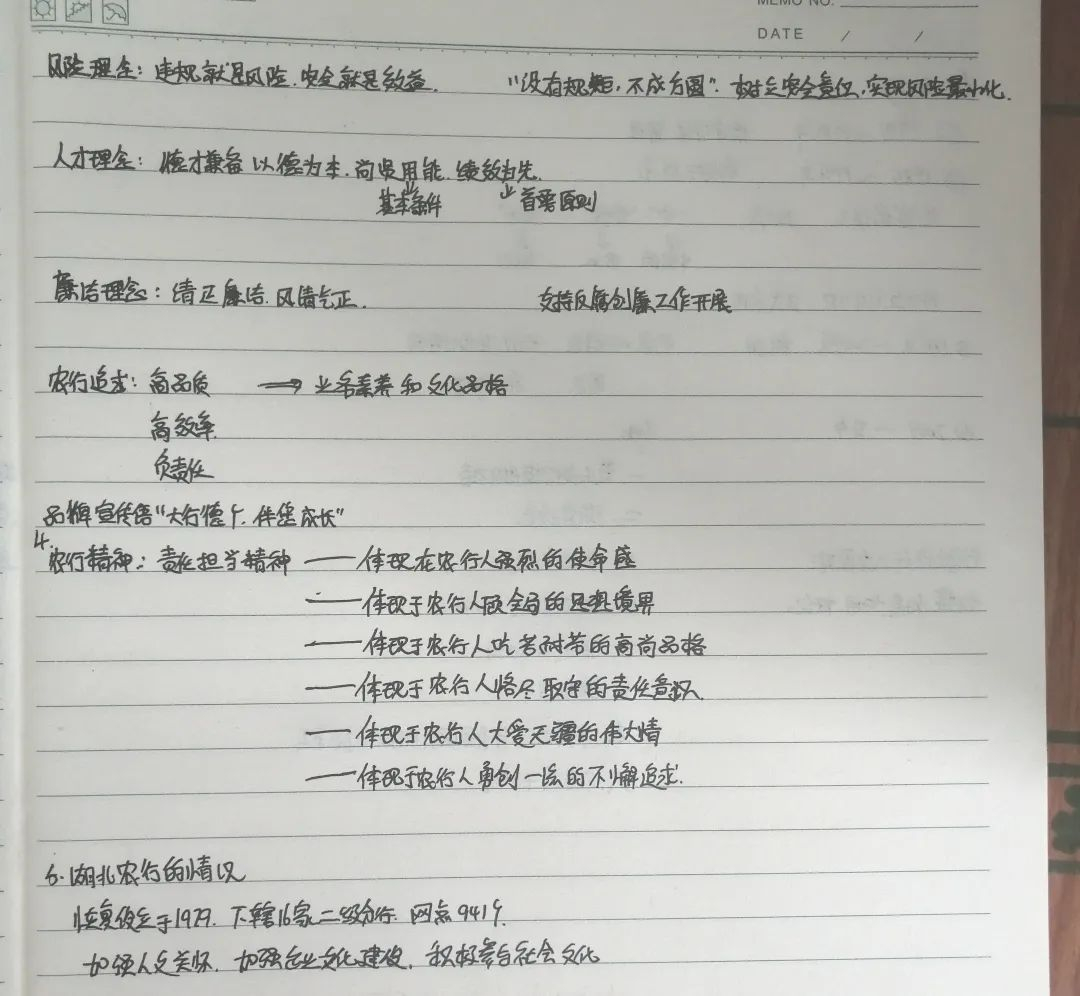 MEMO NO.
DATE / /
风险理念：违规就是风险，安全就是效益． “没有规矩，不成方圆”．树立安全责任，实现风险最小化．
人才理念：德才兼备 以德为本，尚贤用能，绩效为先．
基本条件 首要原则
廉洁理念：清正廉洁．风清气正． 支持反腐创廉工作开展
农行追求：高品质 → 业务素养和文化品格
高效率
负责任
品牌宣传语“大行德广，伴您成长”
4.
农行精神：责任担当精神 ——体现在农行人强烈的使命感
——体现于农行人顾全局的思想境界
——体现于农行人吃苦耐劳的高尚品格
——体现于农行人恪尽职守的责任意识
——体现于农行人大爱无疆的伟大情
——体现于农行人勇创一流的不懈追求．
6．湖北农行的情况
恢复设立于1979．下辖16家二级分行．网点941个．
加强人文关怀．加强企业文化建设，积极参与社会文化